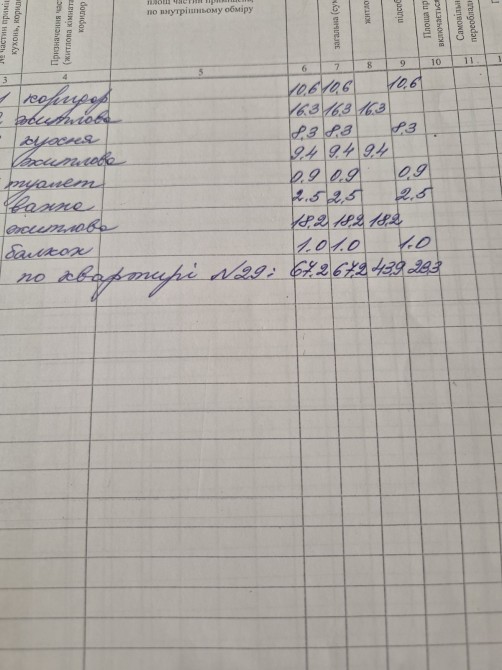 площ частин приміщень,
по внутрішньому обміру
№ частин приміщ
кухонь, коридо
Призначення част
(житлова кімната
коридор
загальна (сум
житло
підсоб
Площа пр
включається
Самовільн
переобладн
3 4 5 6 7 8 9 10 11
1 коридор 10,6 10,6 10,6
житлова 16.3 16.3 16.3
кухня 8,3 8.3 8.3
житлова 9.4 9.4 9.4
туалет 0,9 0.9 0.9
ванна 2.5 2,5 2,5
житлова 18,2 18,2 18,2
балкон 1.0 1.0 1.0
по квартирі N29: 67.2 67,2 43,9 23,3